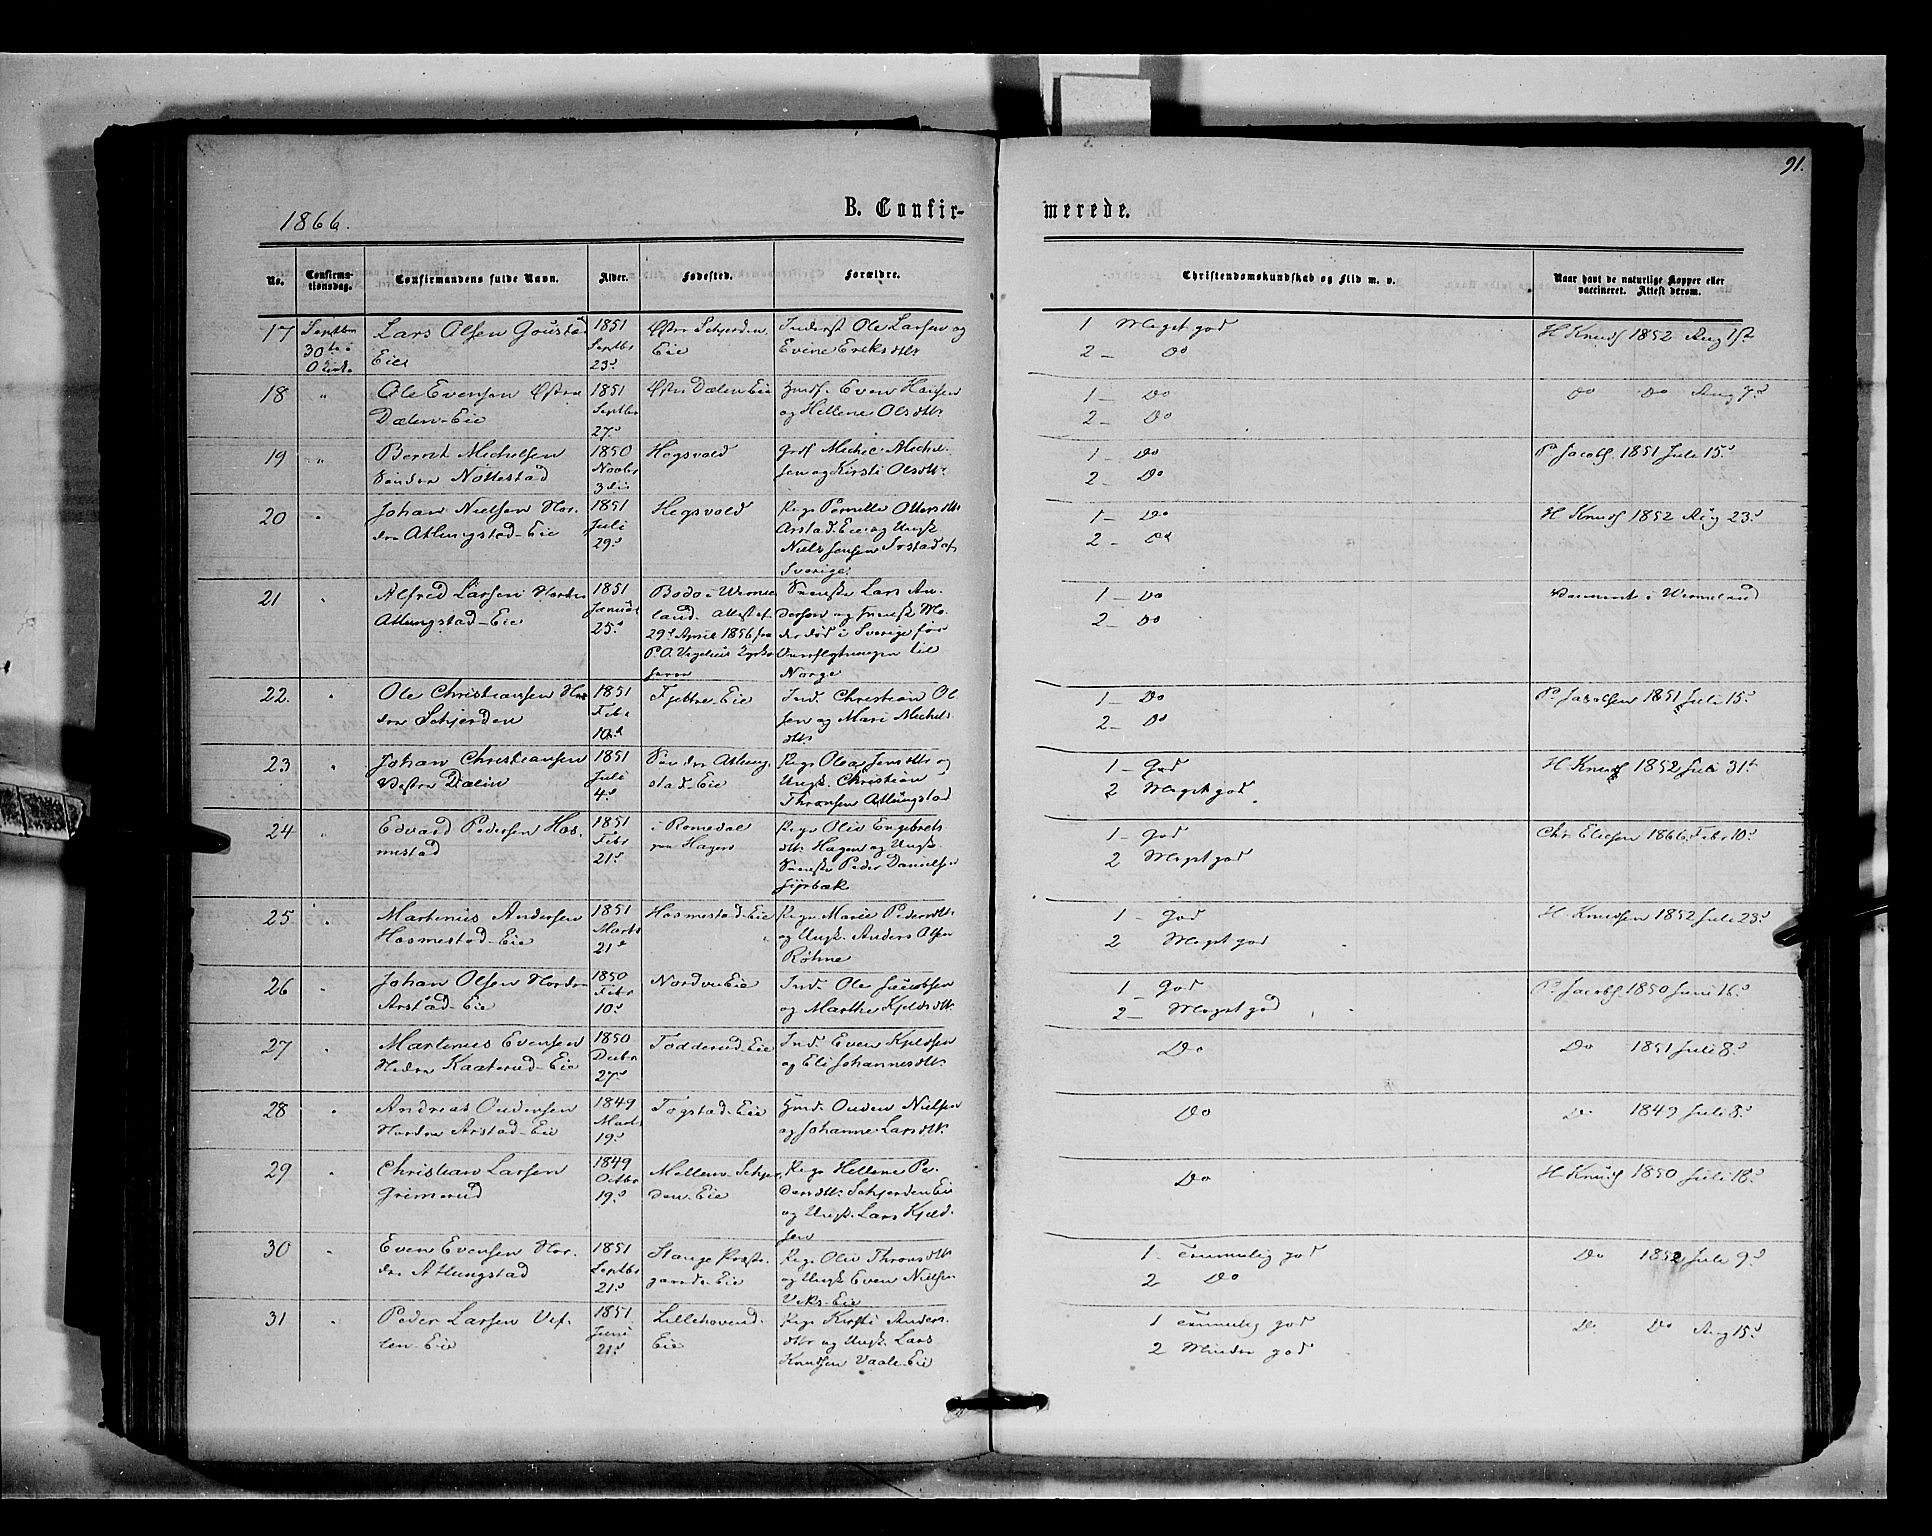 91.
1866.
B. Confirmerede.
No. Confirmationsdag. Confirmandens fulde Navn. Alder. Fødested. Forældre. Christendomskundskab og Flid m. v. Naar havt de naturlige Kopper eller vaccineret. Attest derom.
17 Septbr 30te i Lars Olsen Goustad Eie 1851 Septbr 23d Østre Schjerden Eie Inderst Ole Larsen og Evine Eriksdtr 1 Meget god 2 - Do H Knuds 1852 Aug 1st
18 " Ole Evensen Østre Dælen-Eie 1851 Septbr 27d Østre Dælen Eie Huusm Even Hansen og Hellene Olsdtr 1 - Do 2 - Do Do Do Aug 7d
19 " Bernt Michelsen Søndre Nøttestad 1850 Novbr 3die Hegsvold Grdf Michel Michelsen og Kirsti Olsdtr 1 - Do 2 - Do P. Jacobs. 1851 Juli 15d
20 " Johan Nielsen Nordre Atlungstad-Eie 1851 Juli 29d Hegsvold Pige Pernille Ottersdtr Arstad-Eie og Ungk Niels Jensen af Sverige 1 - Do 2 - Do H Knuds 1852 Aug 23d
21 " Alfred Larsen Nordre Atlungstad-Eie 1851 Januar 25d Boda i Wermeland. Attest af 29d April 1856 fra P. A. Svenske Lars Andersen og svensk Moder død i Sverige før til Norge 1 - Do 2 - Do i Wermeland
22. " Ole Christiansen Nordre Schjerden 1851 Febr 10d Fjettre-Eie Ind. Christian Olsen og Mari Michelsdtr. 1 - Do 2 - Do P. Jacobsen 1851 Juli 15d
23 " Johan Christiansen Vestre Dælin 1851 Juli 4d Søndre Atlungstad-Eie Pige Olea Jensdtr og Ungk. Christian Thronsen Atlungstad 1 - God 2 Meget god H Knuds 1852 Juli 31t
24 " Edvard Pedersen Hosmestad 1851 Febr 21d i Romedal Hagen Pige Oliv Engebretsdtr. Hagen og Ungk. Svenske Peder Danielsen 1 - God 2 Meget god Chr Eliesen 1866 Febr 10d
25 " Martinius Andersen Hosmestad-Eie 1851 Marts 21d Hosmestad-Eie Pige Marie Pedersdtr. og Ungk. Anders Olsen Røhne 1 - God 2 Meget god H Knudsen 1852 Juli 23d
26 " Johan Olsen Nordre Arstad-Eie 1850 Febr 10d Nordvi Eie Ind. Ole Jacobsen og Marthe Kjeldsdtr. 1 - God 2 - Meget god P. Jacobs. 1850 Juni 16d
27 " Martinus Evensen Nedre Kaaterud-Eie 1850 Decbr 27d Todderud-Eie Ind. Even Kjeldsen og Eli Johannesdtr. Do Do 1851 Juli 8d
28 " Andreas Oudensen Nordre Arstad-Eie 1849 Marts 19d Togstad-Eie Huusm. Ouden Nielsen og Johanne Larsdtr. Do Do 1849 Juli 8d
29 " Christian Larsen Grimerud 1849 Octbr 19d Mellem-Schjerden-Eie Pige Hellene Pedersdtr. Schjerden Eie og Ungk. Lars Kjeldsen Do H Knuds 1850 Juli 18d
30 " Even Evensen Nordre Atlungstad 1851 Septbr 21d Stange Præstegaards-Eie Pige Oliv Thronsdtr og Ungk Even Nielsen Veks-Eie 1 - Temmelig god 2 Do Do 1852 Juli 9d
31 " Peder Larsen Veflen-Eie 1851 Juni 21d Lillehovend-Eie Pige Kirsti Andersdtr og Ungk. Lars Knudsen Vaale-Eie 1 Temmelig god 2 Mindre god Do Do Aug 15d